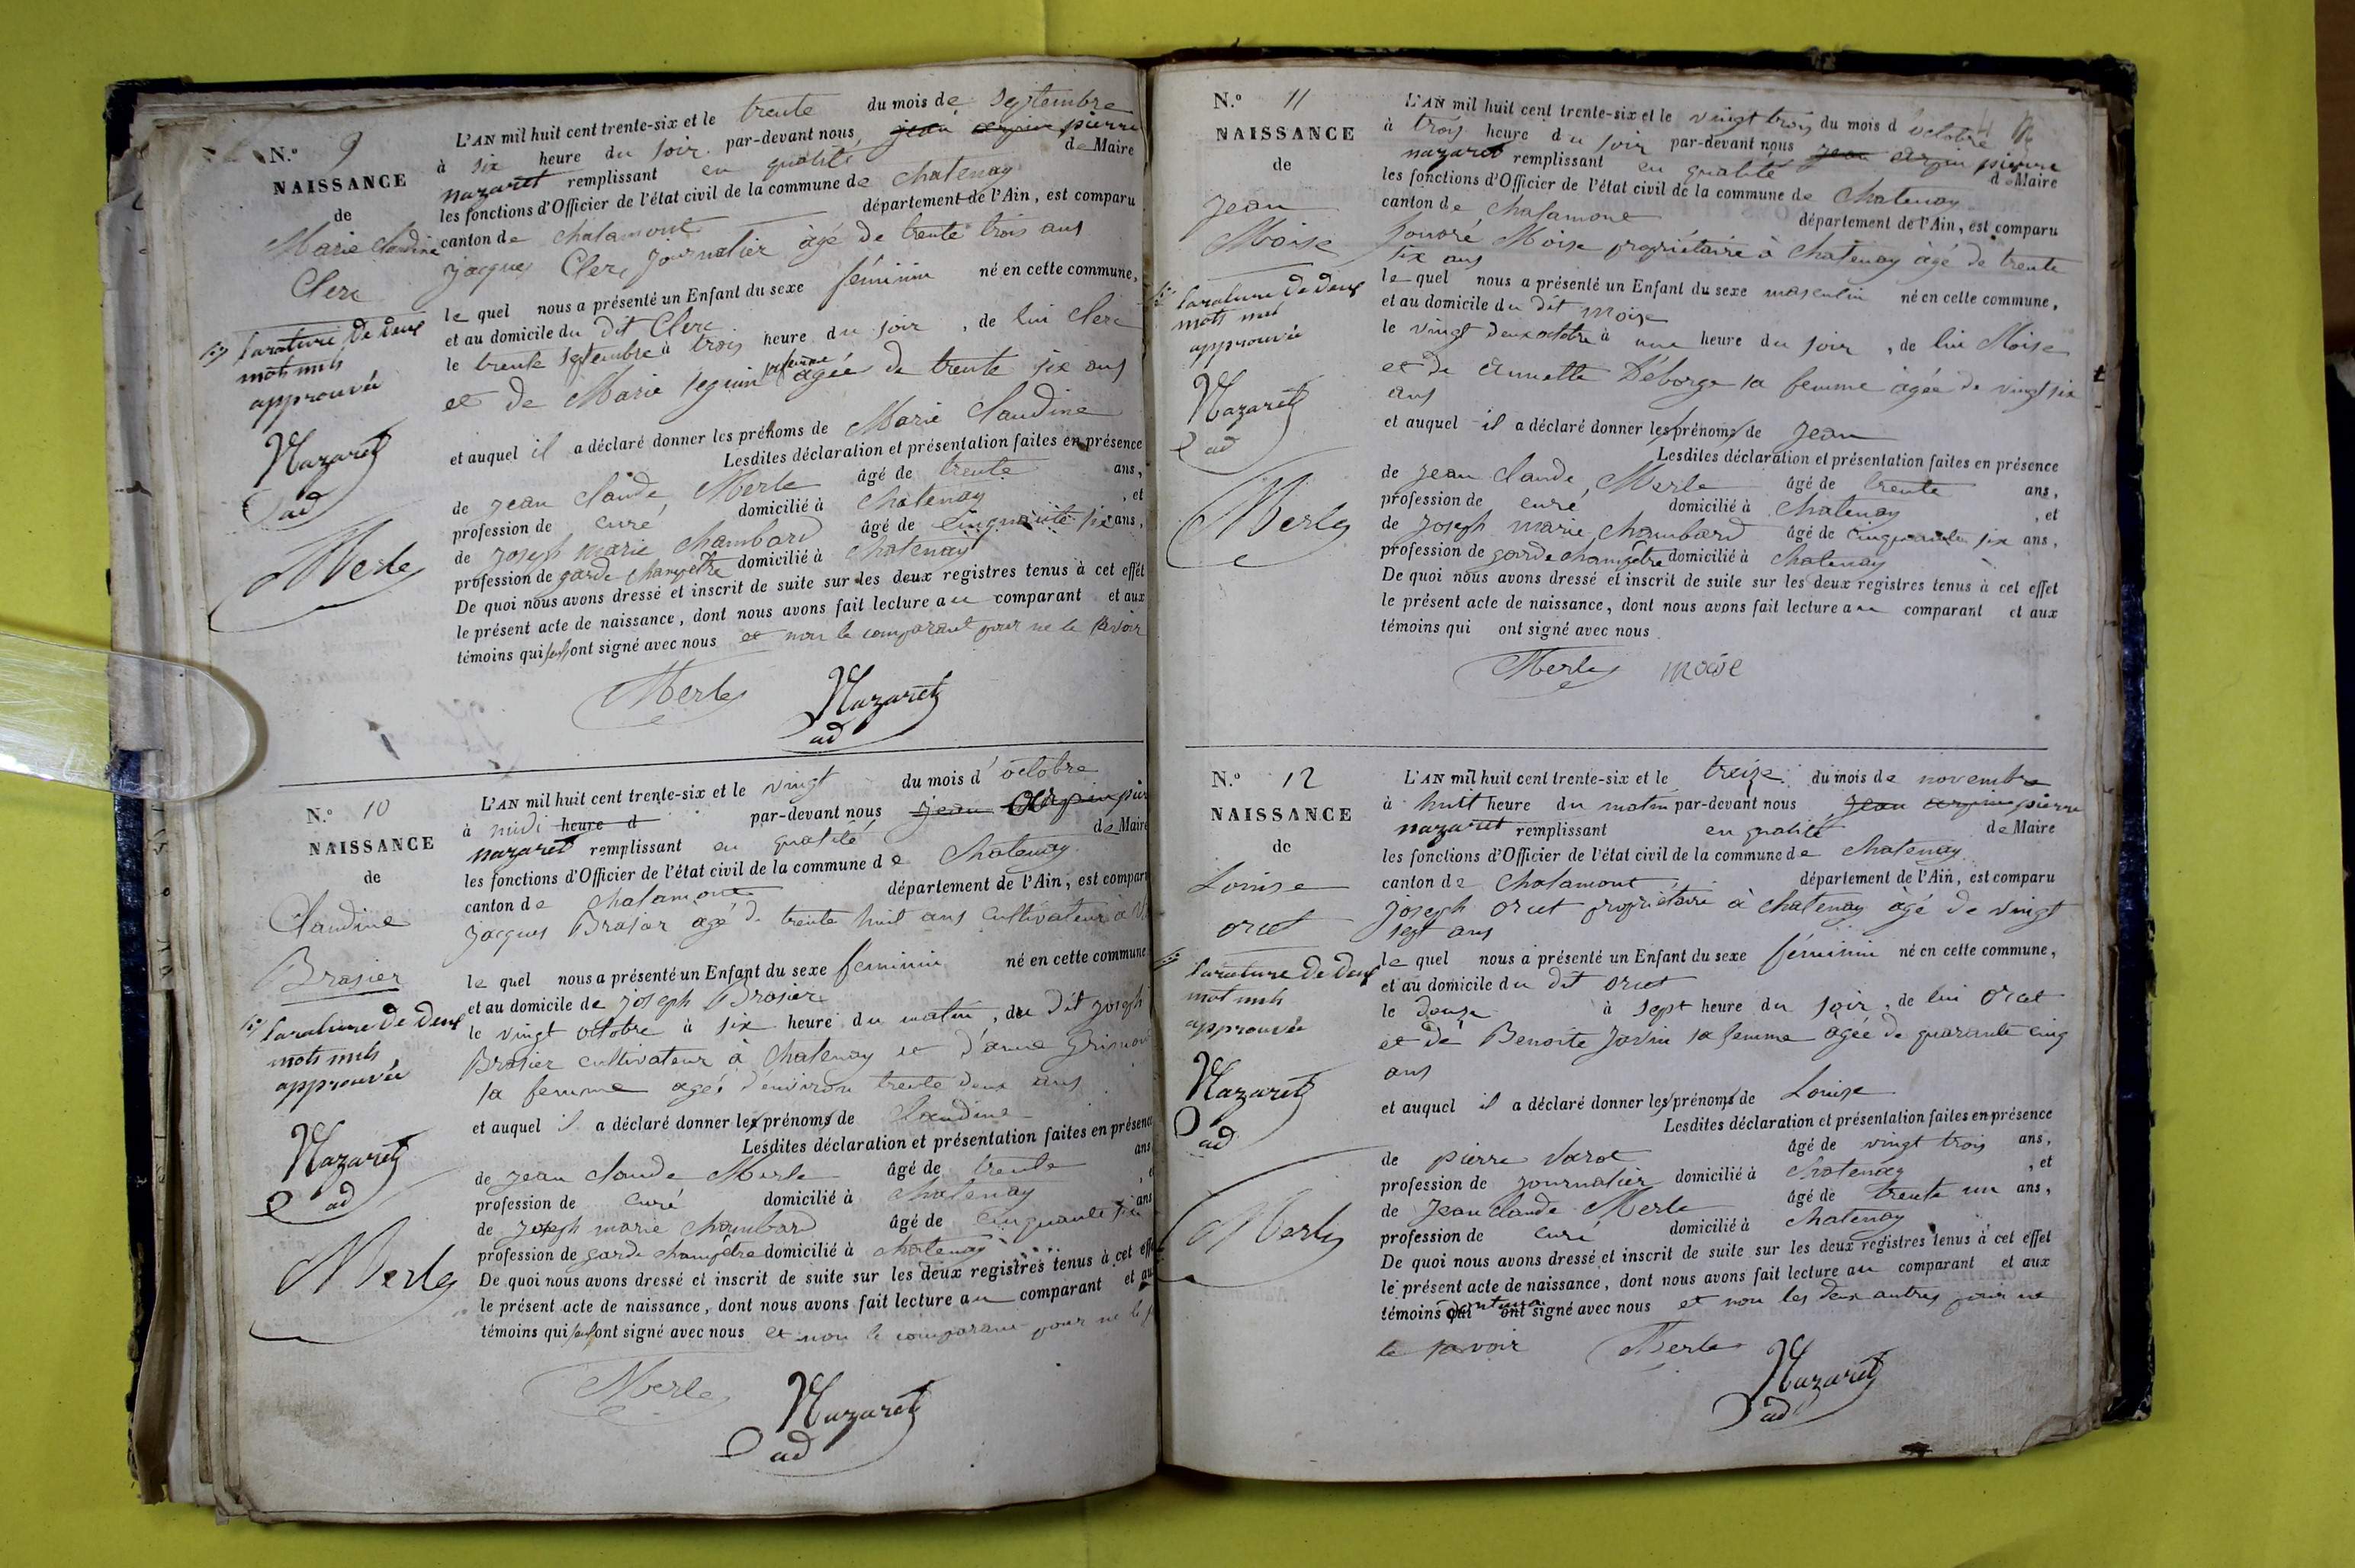 N.o 9
NAISSANCE
de
Marie Claudine
Clerc
la rature de deux
mots nuls
approuvée
Nazaret
ad
Merle
L'AN mil huit cent trente-six et le trente du mois de septembre
à six heure du soir par-devant nous, jean pierre
nazaret remplissant en qualité de Maire
les fonctions d'Officier de l'état civil de la commune de chatenay
canton de chalamont département de l'Ain, est comparu
jacques Clerc journalier âgé de trente trois ans
le quel nous a présenté un Enfant du sexe féminin né en cette commune,
et au domicile du dit Clerc
le trente septembre à trois heure du soir, de lui Clerc
et de Marie seguin sa femme agée de trente six ans
et auquel il a déclaré donner les prénoms de Marie Claudine
Lesdites déclaration et présentation faites en présence
de jean claude Merle âgé de trente ans,
profession de curé domicilié à chatenay, et
de joseph marie chambard âgé de cinquante six ans,
profession de garde champêtre domicilié à chatenay
De quoi nous avons dressé et inscrit de suite sur les deux registres tenus à cet effet
le présent acte de naissance, dont nous avons fait lecture au comparant et aux
témoins qui seul ont signé avec nous et non le comparant pour ne le savoir
Merle Nazaret
ad
N.o 10
NAISSANCE
de
Claudine
Brasier
la rature de deux
mots nuls
approuvée
Nazaret
ad
Merle
L'AN mil huit cent trente-six et le vingt du mois d'octobre
à midi heure d par-devant nous jean
nazaret remplissant en qualité de Maire
les fonctions d'Officier de l'état civil de la commune de chatenay
canton de chalamont département de l'Ain, est comparu
jacques Brasier agé de trente huit ans cultivateur à
le quel nous a présenté un Enfant du sexe feminin né en cette commune
et au domicile de joseph Brasier
le vingt octobre à six heure du matin, du dit joseph
Brasier cultivateur à chatenay et d'anne
sa femme agée d'environ trente deux ans
et auquel il a déclaré donner les prénoms de Claudine
Lesdites déclaration et présentation faites en présence
de jean claude Merle âgé de trente ans
profession de curé domicilié à chatenay
de joseph marie chambard âgé de cinquante six ans
profession de garde champêtre domicilié à chatenay
De quoi nous avons dressé et inscrit de suite sur les deux registres tenus à cet
le présent acte de naissance, dont nous avons fait lecture au comparant et
témoins qui seul ont signé avec nous et non le comparant pour ne le
Merle Nazaret
ad
N.o 11
NAISSANCE
de
jean
Moise
la rature de deux
mots nuls
approuvée
Nazaret
ad
Merle
L'AN mil huit cent trente-six et le vingt trois du mois d'octobre
à trois heure du soir par-devant nous jean pierre
nazaret remplissant en qualité de Maire
les fonctions d'Officier de l'état civil de la commune de chatenay
canton de chalamont département de l'Ain, est comparu
honoré Moise propriétaire à chatenay agé de trente
six ans
le quel nous a présenté un Enfant du sexe masculin né en cette commune,
et au domicile du dit moise
le vingt deux octobre à une heure du soir, de lui Moise
et de annette Déborge sa femme agée de vingt six
ans
et auquel il a déclaré donner les prénoms de jean
Lesdites déclaration et présentation faites en présence
de jean claude Merle âgé de trente ans,
profession de curé domicilié à chatenay, et
de joseph marie chambard âgé de cinquante six ans,
profession de garde champêtre domicilié à chatenay
De quoi nous avons dressé et inscrit de suite sur les deux registres tenus à cet effet
le présent acte de naissance, dont nous avons fait lecture au comparant et aux
témoins qui ont signé avec nous
Merle moise
N.o 12
NAISSANCE
de
Louise
orcet
la rature de deux
mots nuls
approuvée
Nazaret
ad
Merle
L'AN mil huit cent trente-six et le treize du mois de novembre
à huit heure du matin par-devant nous, jean pierre
nazaret remplissant en qualité de Maire
les fonctions d'Officier de l'état civil de la commune de chatenay
canton de chalamont département de l'Ain, est comparu
joseph orcet propriétaire à chatenay agé de vingt
sept ans
le quel nous a présenté un Enfant du sexe féminin né en cette commune,
et au domicile du dit orcet
le douze à sept heure du soir, de lui orcet
et de Benoite sa femme agée de quarante cinq
ans
et auquel il a déclaré donner les prénoms de Louise
Lesdites déclaration et présentation faites en présence
de pierre âgé de vingt trois ans,
profession de journalier domicilié à chatenay, et
de jean claude Merle âgé de trente un ans,
profession de curé domicilié à chatenay
De quoi nous avons dressé et inscrit de suite sur les deux registres tenus à cet effet
le présent acte de naissance, dont nous avons fait lecture au comparant et aux
témoins dont un a signé avec nous et non les deux autres pour ne
le savoir Merle Nazaret
ad